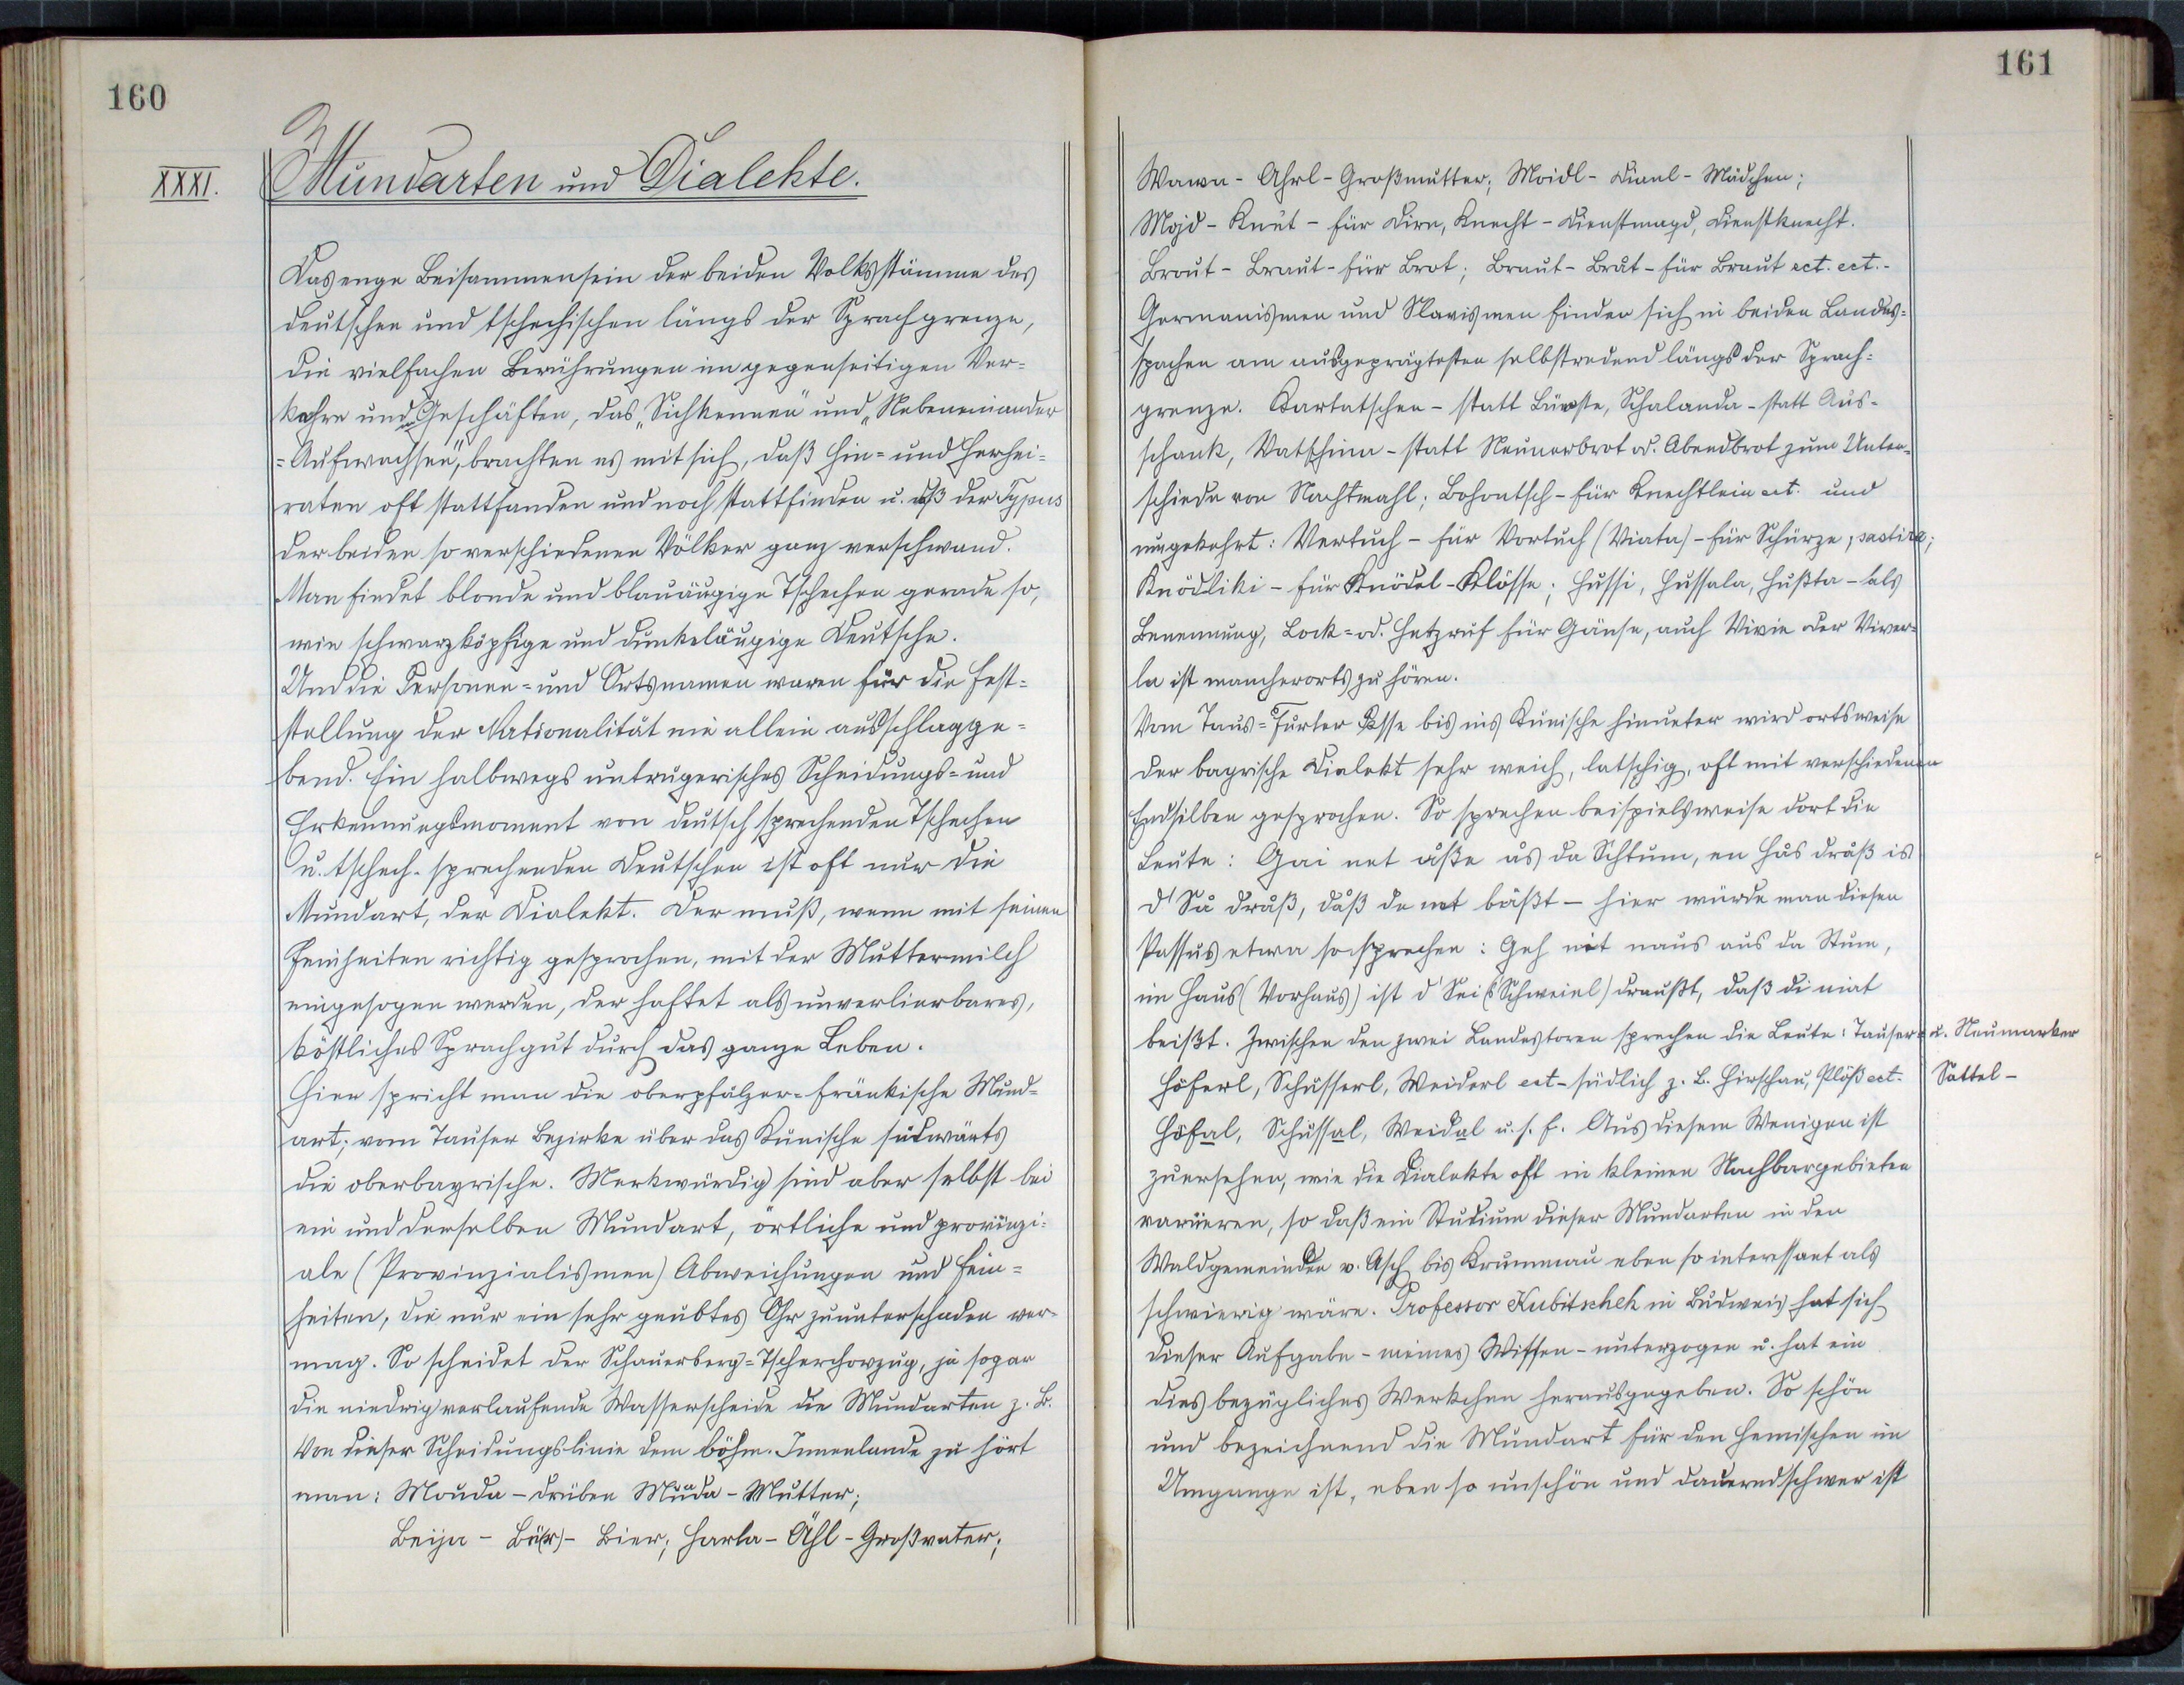 160
XXXI.
Mundarten und Dialekte.
Das enge Beisammensein der beiden Volksstämme des
deutschen und tschechischen längs der Sprachgrenze,
die vielfachen Berührungen im gegenseitigen Ver=
kehre und in Geschäften, das „Sichkennen" und „Nebeneinander
=Aufwachsen", brachten es mit sich, daß Hin= und Herhei=
raten oft stattfanden und noch stattfinden u. daß der Typus
der beiden so verschiedenen Völker ganz verschwand.
Man findet blonde und blauäugige Tschechen gerade so,
wie schwarzköpfige und dunkeläugige Deutsche.
Und die Personen= und Ortsnamen waren für die Fest=
stellung der Nationalität nie allein ausschlagge=
bend. Ein halbwegs untrügerisches Scheidungs= und
Erkennungsmoment von deutsch sprechenden Tschechen
u. tschech. sprechenden Deutschen ist oft nur die
Mundart, der Dialekt. Der muß, wenn mit seinen
Feinheiten richtig gesprochen, mit der Muttermilch
eingesogen werden, der haftet als unverlierbares,
köstliches Sprachgut durch das ganze Leben.
Hier spricht man die oberpfälzer=fränkische Mund=
art; vom Tauser Bezirke über das Künische südwärts
die oberbayrische. Merkwürdig sind aber selbst bei
ein und derselben Mundart, örtliche und provinzi=
ale (Provinzialismen) Abweichungen und Fein=
heiten, die nur ein sehr geübtes Ohr zuunterscheiden ver=
mag. So scheidet der Schauerberg=Tscherchovzug, ja sogar
die niedrig verlaufende Wasserscheide die Mundarten z. B.
Von dieser Scheidungslinie dem böhm. Innenlande zu hört
man: Mouda – drüben Muada – Mutter;
Beija – Bä(r) – Bier; Harla – Ähl – Großvater;
161
Wawa – Ahrl – Großmutter; Moidl – Dianl – Mädchen;
Mojd – Knet – für Dirn, Knecht – Dienstmagd, Dienstknecht.
Brout – Braut – für Brot; Braut – Bråt – für Braut ect. ect. –
Germanismen und Slavismen finden sich in beiden Landes=
spachen am ausgeprägtesten selbstredend längs der Sprach=
grenze. Kartatschen – statt Bürste, Schalanda – statt Aus=
schank, Vatschina – statt Neunerbrot od. Abendbrot zum Unter=
schiede von Nachtmahl; Bohontsch – für Knechtlein ect. und
umgekehrt: Vertuch – für Vortuch (Viata) – für Schürze,
Knödliki – für Knödel – Klösse; Hussi, Hussala, Hußta – als
Benennung, Lock= od. Hetzruf für Gänse, auch Vivie oder Viver=
la ist mancherorts zu hören.
Vom Taus=Further Passe bis ins Künische hinunter wird ortsweise
der bayrische Dialekt sehr weich, latschig, oft mit verschiedenen
Endsilben gesprochen. So sprechen beispielsweise dort die
Leute: Gai net åße ås da Schtum, en Hås dråß is
d' Så dråß, dåß de net bäßt – hier würde man diesen
Passus etwa so sprechen: Geh nit naus aus da Stum,
im Haus (Vorhaus) ist d' Sei (s' Schweinl) draußt, daß di niat
beißt. Zwischen den zwei Landestoren sprechen die Leute: Tauser= u. Neumarker
Sattel –
Höferl, Schüsserl, Weiderl ect – südlich z. B. Hirschau, Plöß ect.
Höfal, Schüssal, Weidal u. s. f. Aus diesem Wenigen ist
zuersehen, wie die Dialekte oft in kleinen Nachbargebieten
variieren, so daß ein Studium dieser Mundarten in den
Waldgemeinden v. Asch bis Krummau eben so interessant als
schwierig wäre. Professor Kubitschek in Budweis hat sich
dieser Aufgabe – meines Wissen – unterzogen u. hat ein
dies bezügliches Werkchen herausgegeben. So schön
und bezeichnend die Mundart für den Hemischen im
Umgange ist, eben so unschön und dauernd schwer ist